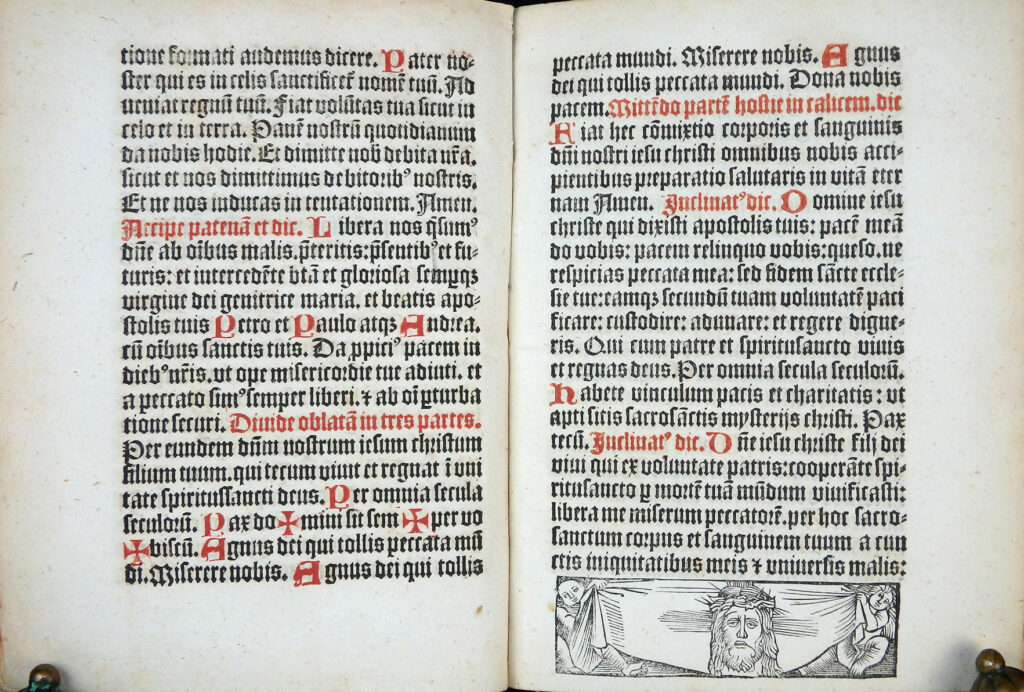 tione formati audemus dicere. Pater no⸗
ster qui es in celis sanctificet᷑ nomē tuū. Ad
ueniat regnū tuū. Fiat volūtas tua sicut in
celo et in terra. Panē nostrū quotidianum
da nobis hodie. Et dimitte nob̄ debita nr̄a.
sicut et nos dimittimus debitorib⁹ nostris.
Et ne nos inducas in tentationem. Amen.
Accipe patenā et dic. Libera nos q̄sum⁹
dn̄e ab oībus malis. p̄teritis: p̄sentib⁹ et fu⸗
turis: et intercedēte btā et gloriosa semperqꝫ
virgine dei genitrice maria. et beatis apo⸗
stolis tuis Petro et Paulo atqꝫ Andrea.
cū oībus sanctis tuis. Da ꝓpici⁹ pacem in
dieb⁹ nr̄is. vt ope misericordie tue adiuti. et
a peccato sim⁹ semper liberi. ⁊ ab oī ꝑturba
tione securi. Diuide oblatā in tres partes.
Per eundem dn̄m nostrum iesum christum
filium tuum. qui tecum viuit et regnat ī vni
tate spiritussancti deus. Per omnia secula
seculorū. Pax do ✠ mini sit sem ✠ per vo
✠ biscū. Agnus dei qui tollis peccata mū
di. Miserere nobis. Agnus dei qui tollis
peccata mundi. Miserere nobis. Agnus
dei qui tollis peccata mundi. Dona nobis
pacem. Mittēdo partē hostie in calicem. dic
Fiat hec cōmixtio corporis et sanguinis
dn̄i nostri iesu christi omnibus nobis acci⸗
pientibus preparatio salutaris in vitā eter
nam Amen. Inclinat⁹ dic. Domine iesu
christe qui dixisti apostolis tuis: pacē meā
do vobis: pacem relinquo vobis: queso. ne
respicias peccata mea: sed fidem sācte eccle⸗
sie tue: eamqꝫ secundū tuam voluntatē paci
ficare: custodire: adunare: et regere digne⸗
ris. Qui cum patre et spiritusancto viuis
et regnas deus. Per omnia secula seculorū.
Habete vinculum pacis et charitatis: vt
apti sitis sacrosāctis mysterijs christi. Pax
tecū. Inclinat⁹ dic. Dn̄e iesu christe fili dei
viui qui ex voluntate patris: cooperāte spi⸗
ritusancto ꝑ mortē tuā mūdum viuificasti:
libera me miserum peccatorē. per hoc sacro⸗
sanctum corpus et sanguinem tuum a cun
ctis iniquitatibus meis ⁊ vniuersis malis: